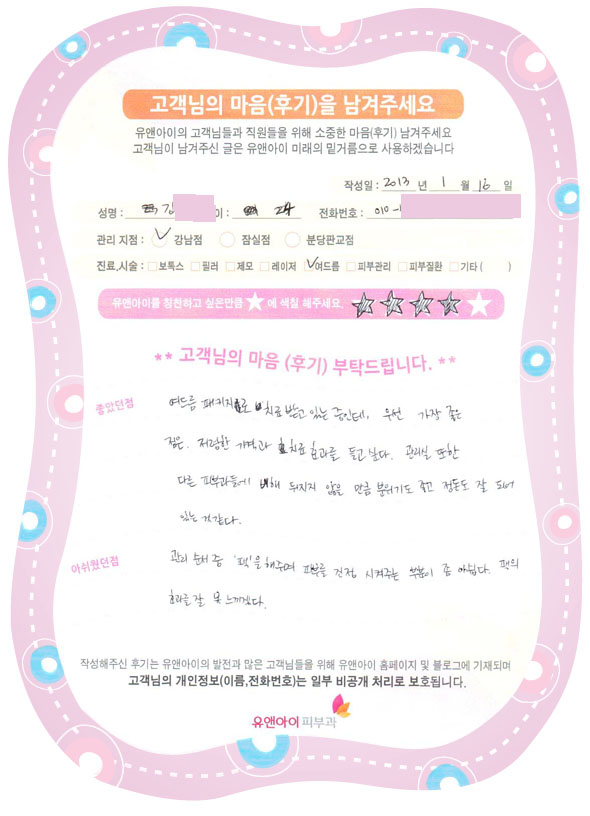 고객님의 마음(후기)을 남겨주세요
유앤아이의 고객님들과 직원들을 위해 소중한 마음(후기) 남겨주세요
고객님이 남겨주신 글은 유앤아이 미래의 밑거름으로 사용하겠습니다
작성일 : 2013 년 1 월 16 일
성명 : 김 이 : 24 전화번호 : 010-
관리 지점 : 강남점 잠실점 분당판교점
진료,시술 : 보톡스 필러 제모 레이저 여드름 피부관리 피부질환 기타 ( )
유앤아이를 칭찬하고 싶은만큼 ★ 에 색칠 해주세요.
** 고객님의 마음 (후기) 부탁드립니다. **
좋았던점
여드름 패키지로 치료 받고 있는 중인데, 우선 가장 좋은
점은 저렴한 가격과 치료 효과를 들고 싶다. 관리실 또한
다른 피부과들에 비해 뒤지지 않을 만큼 분위기도 좋고 정돈도 잘 되어
있는 것 같다.
아쉬웠던점
관리 순서 중 '팩'을 해주며 피부를 진정 시켜주는 부분이 좀 아쉽다. 팩의
효과를 잘 못 느끼겠다.
작성해주신 후기는 유앤아이의 발전과 많은 고객님들을 위해 유앤아이 홈페이지 및 블로그에 기재되며
고객님의 개인정보(이름,전화번호)는 일부 비공개 처리로 보호됩니다.
유앤아이 피부과